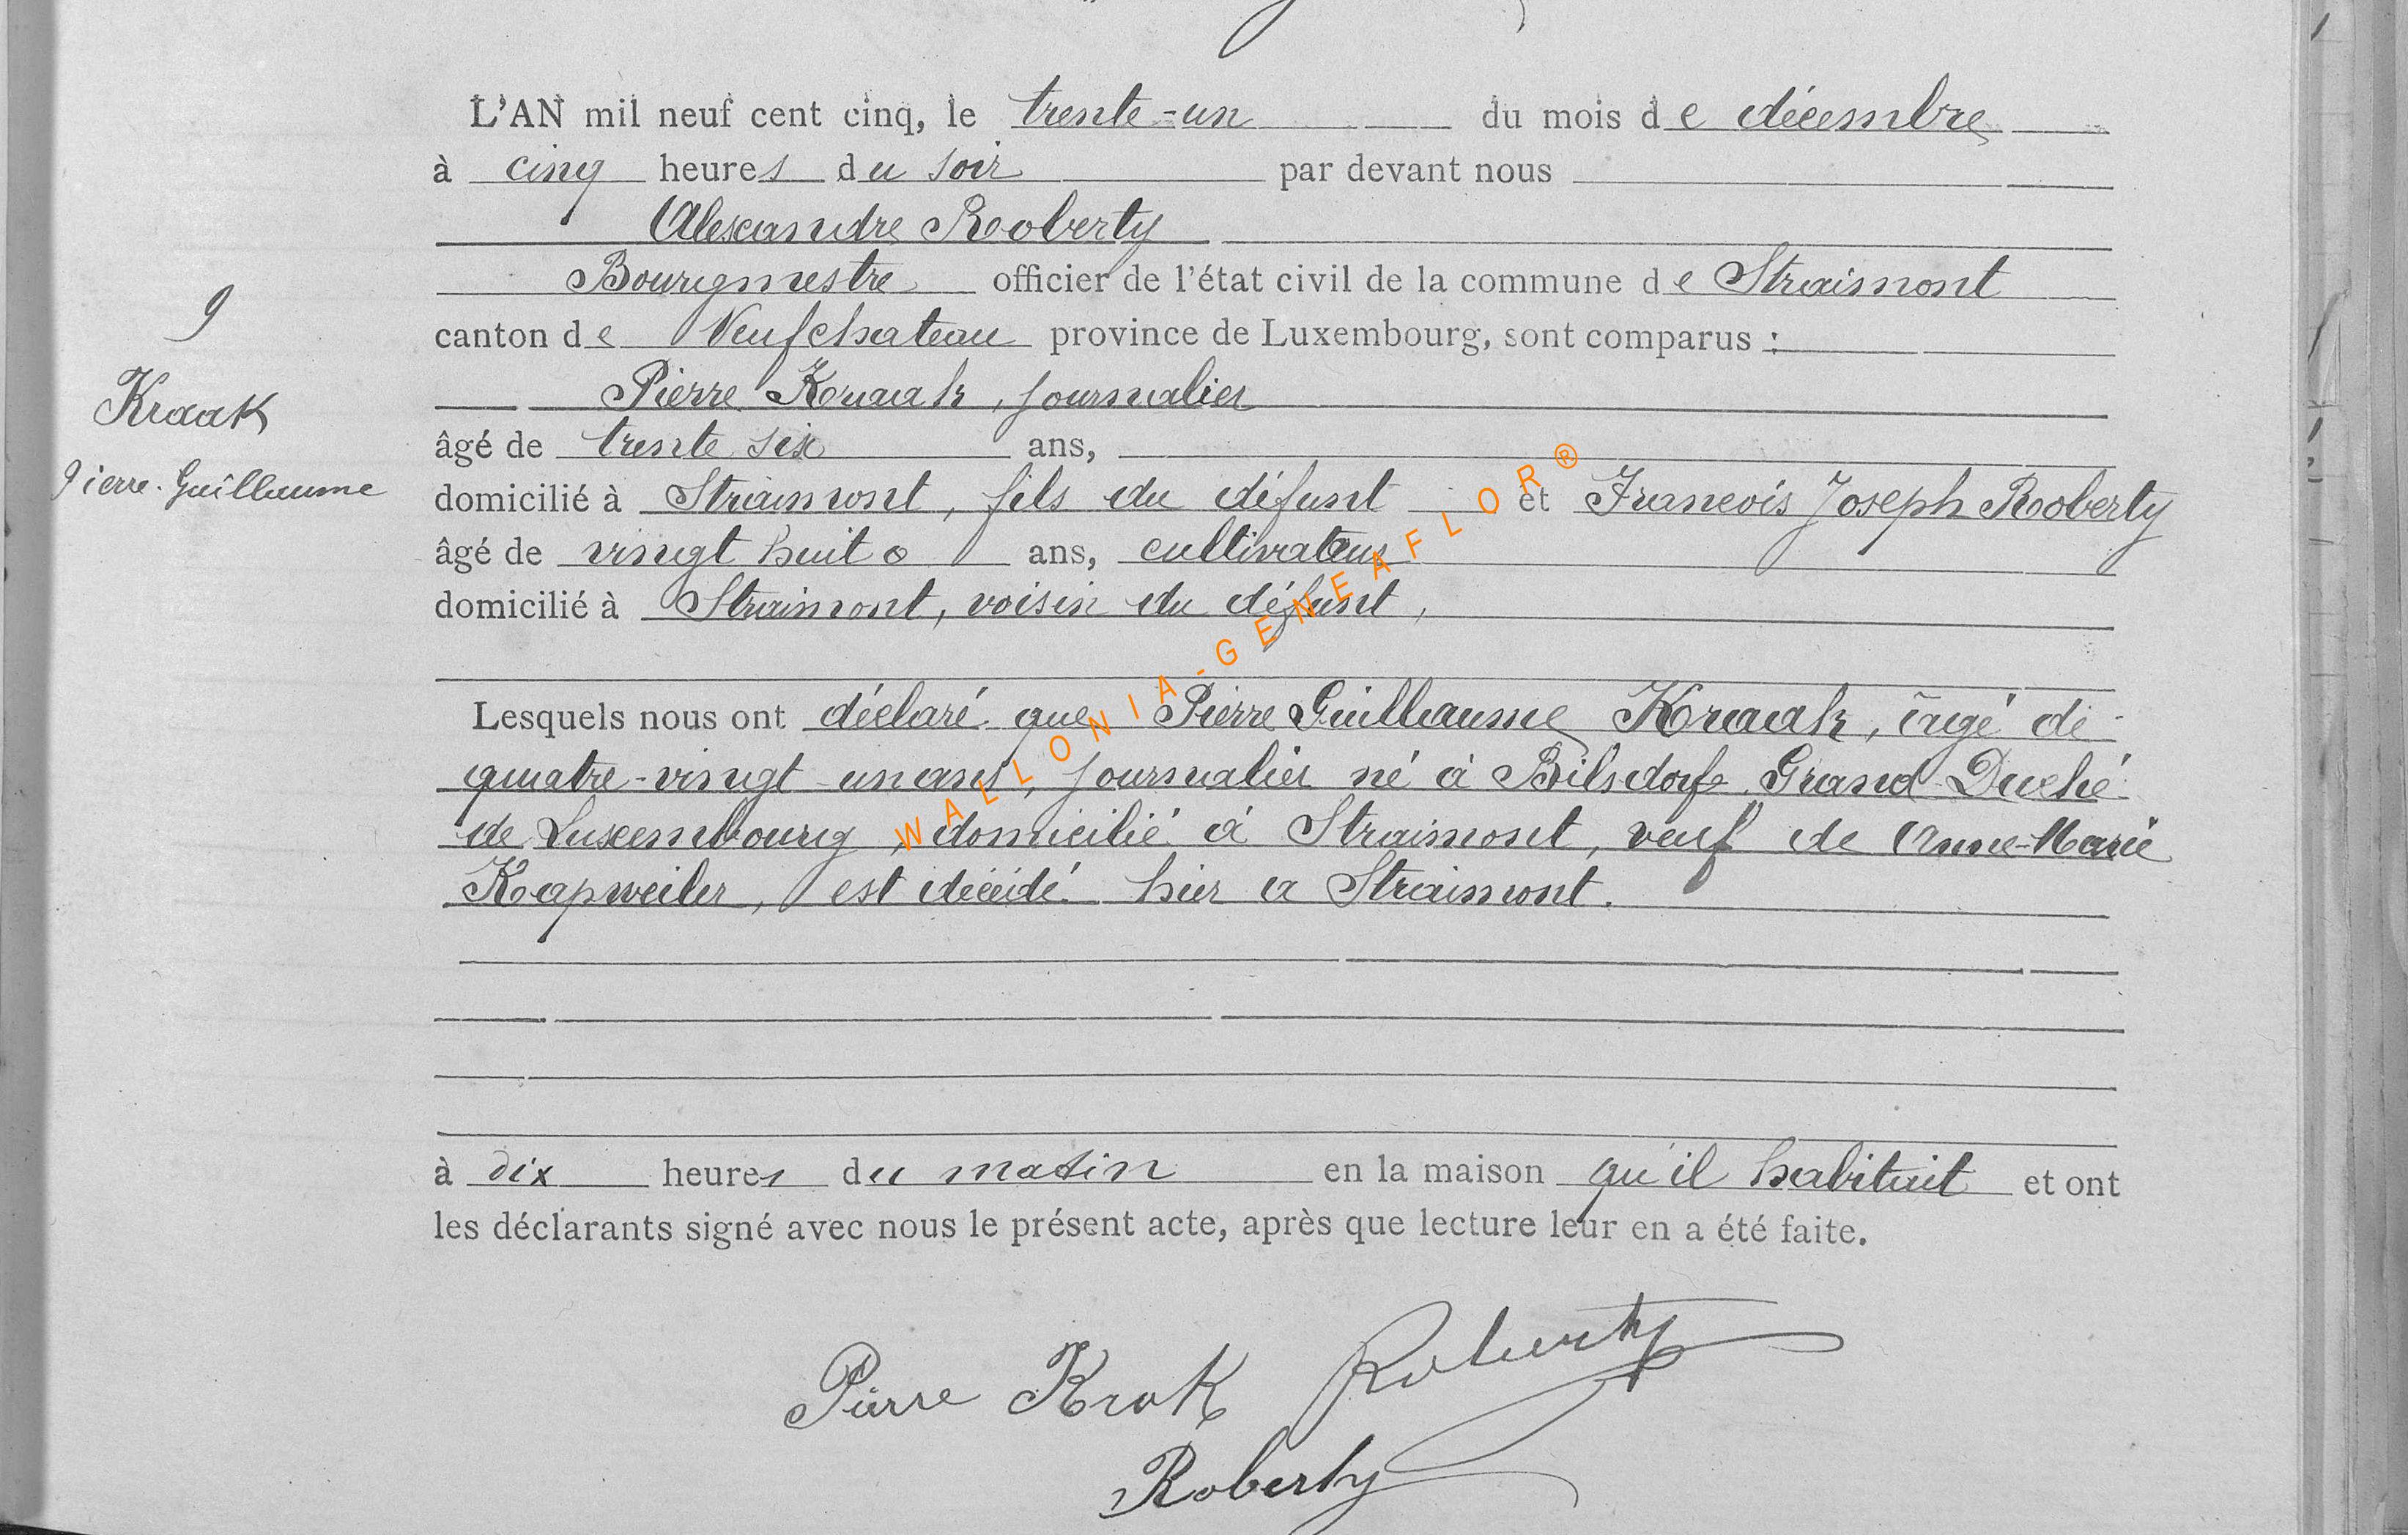 L'AN mil neuf cent cinq, le trente-un du mois de décembre
à cinq heures du soir par devant nous
Alexandre Roberty
Bourgmestre officier de l'état civil de la commune de Straimont
canton de Neufchateau province de Luxembourg, sont comparus :
Pierre Kraak, journalier
âgé de trente six ans,
domicilié à Straimont, fils du défunt et Francois Joseph Roberty
âgé de vingt huit ans, cultivateur
domicilié à Straimont, voisin du défunt,
9
Kraak
Pierre-Guillaume
Lesquels nous ont déclaré que Pierre Guillaume Kraak, âgé de
quatre-vingt-un ans, journalier né à Bilsdorf Grand-Duché
de Luxembourg, domicilié à Straimont, veuf de Anne-Marie
Kapweiler, est décédé hier a Straimont.
à dix heures du matin en la maison qu'il habitait et ont
les déclarants signé avec nous le présent acte, après que lecture leur en a été faite.
Pierre Krak Roberty
Roberty
WALLONIA-GENEAFLOR®